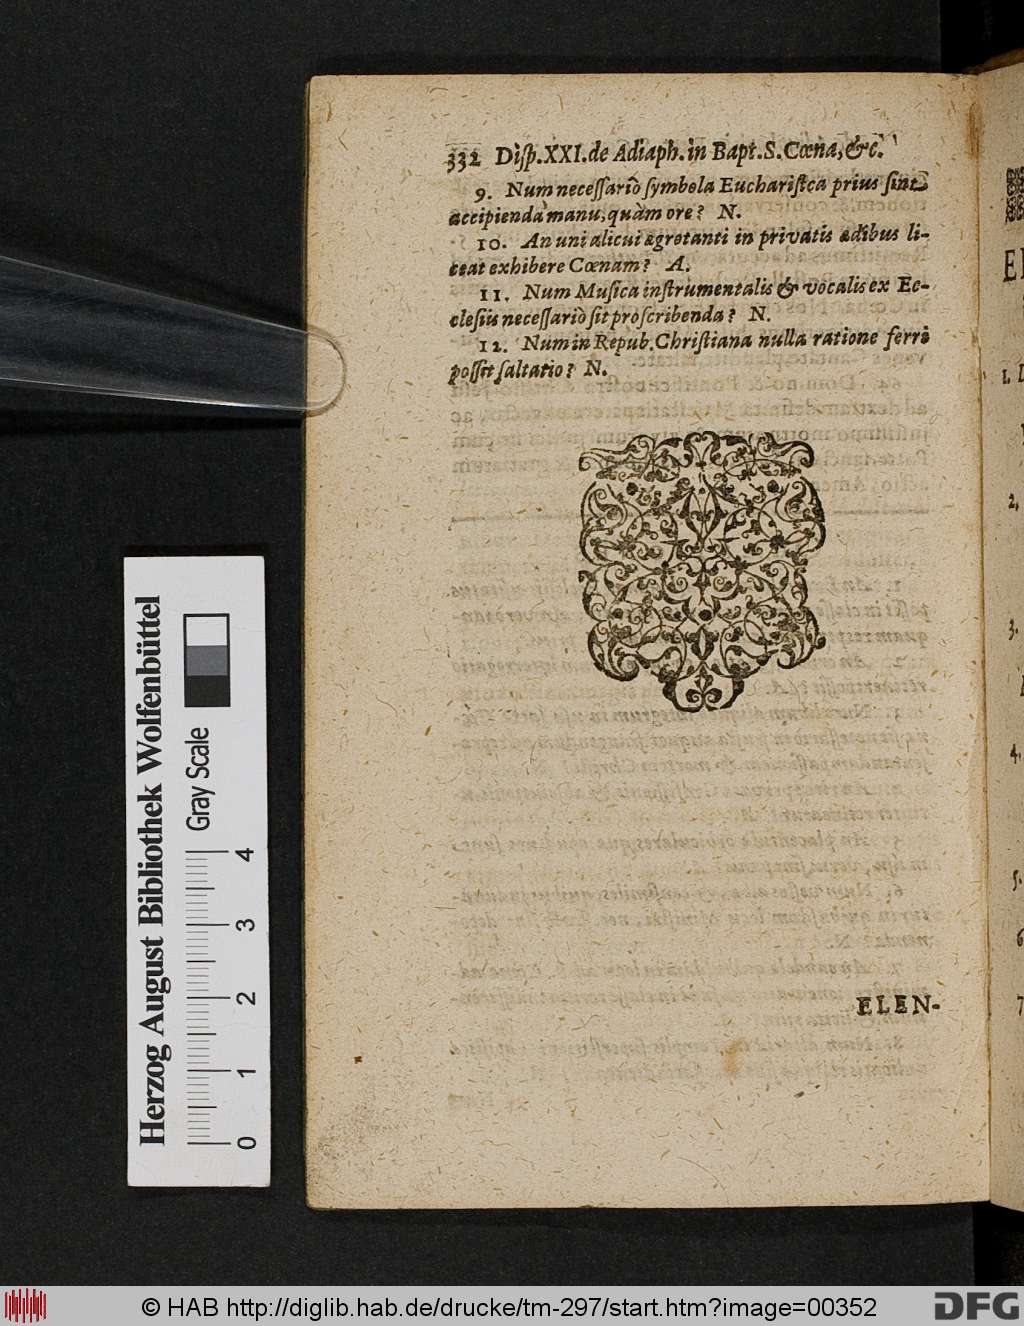 332 Disp. XXI. de Adiaph. in Bapt. S. Cœna, &c.
9. Num necessariò symbola Eucharistica prius sint
accipienda manu, quàm ore? N.
10. An uni alicui ægrotanti in privatis ædibus li-
ceat exhibere Cœnam? A.
11. Num Musica instrumentalis & vocalis ex Ec-
clesiis necessariò sit proscribenda? N.
12. Num in Repub. Christiana nulla ratione ferri
possit saltatio? N.
ELEN-
1.
2.
3.
4.
5.
6
7
Herzog August Bibliothek Wolfenbüttel
Gray Scale
0 1 2 3 4
© HAB http://diglib.hab.de/drucke/tm-297/start.htm?image=00352
DFG